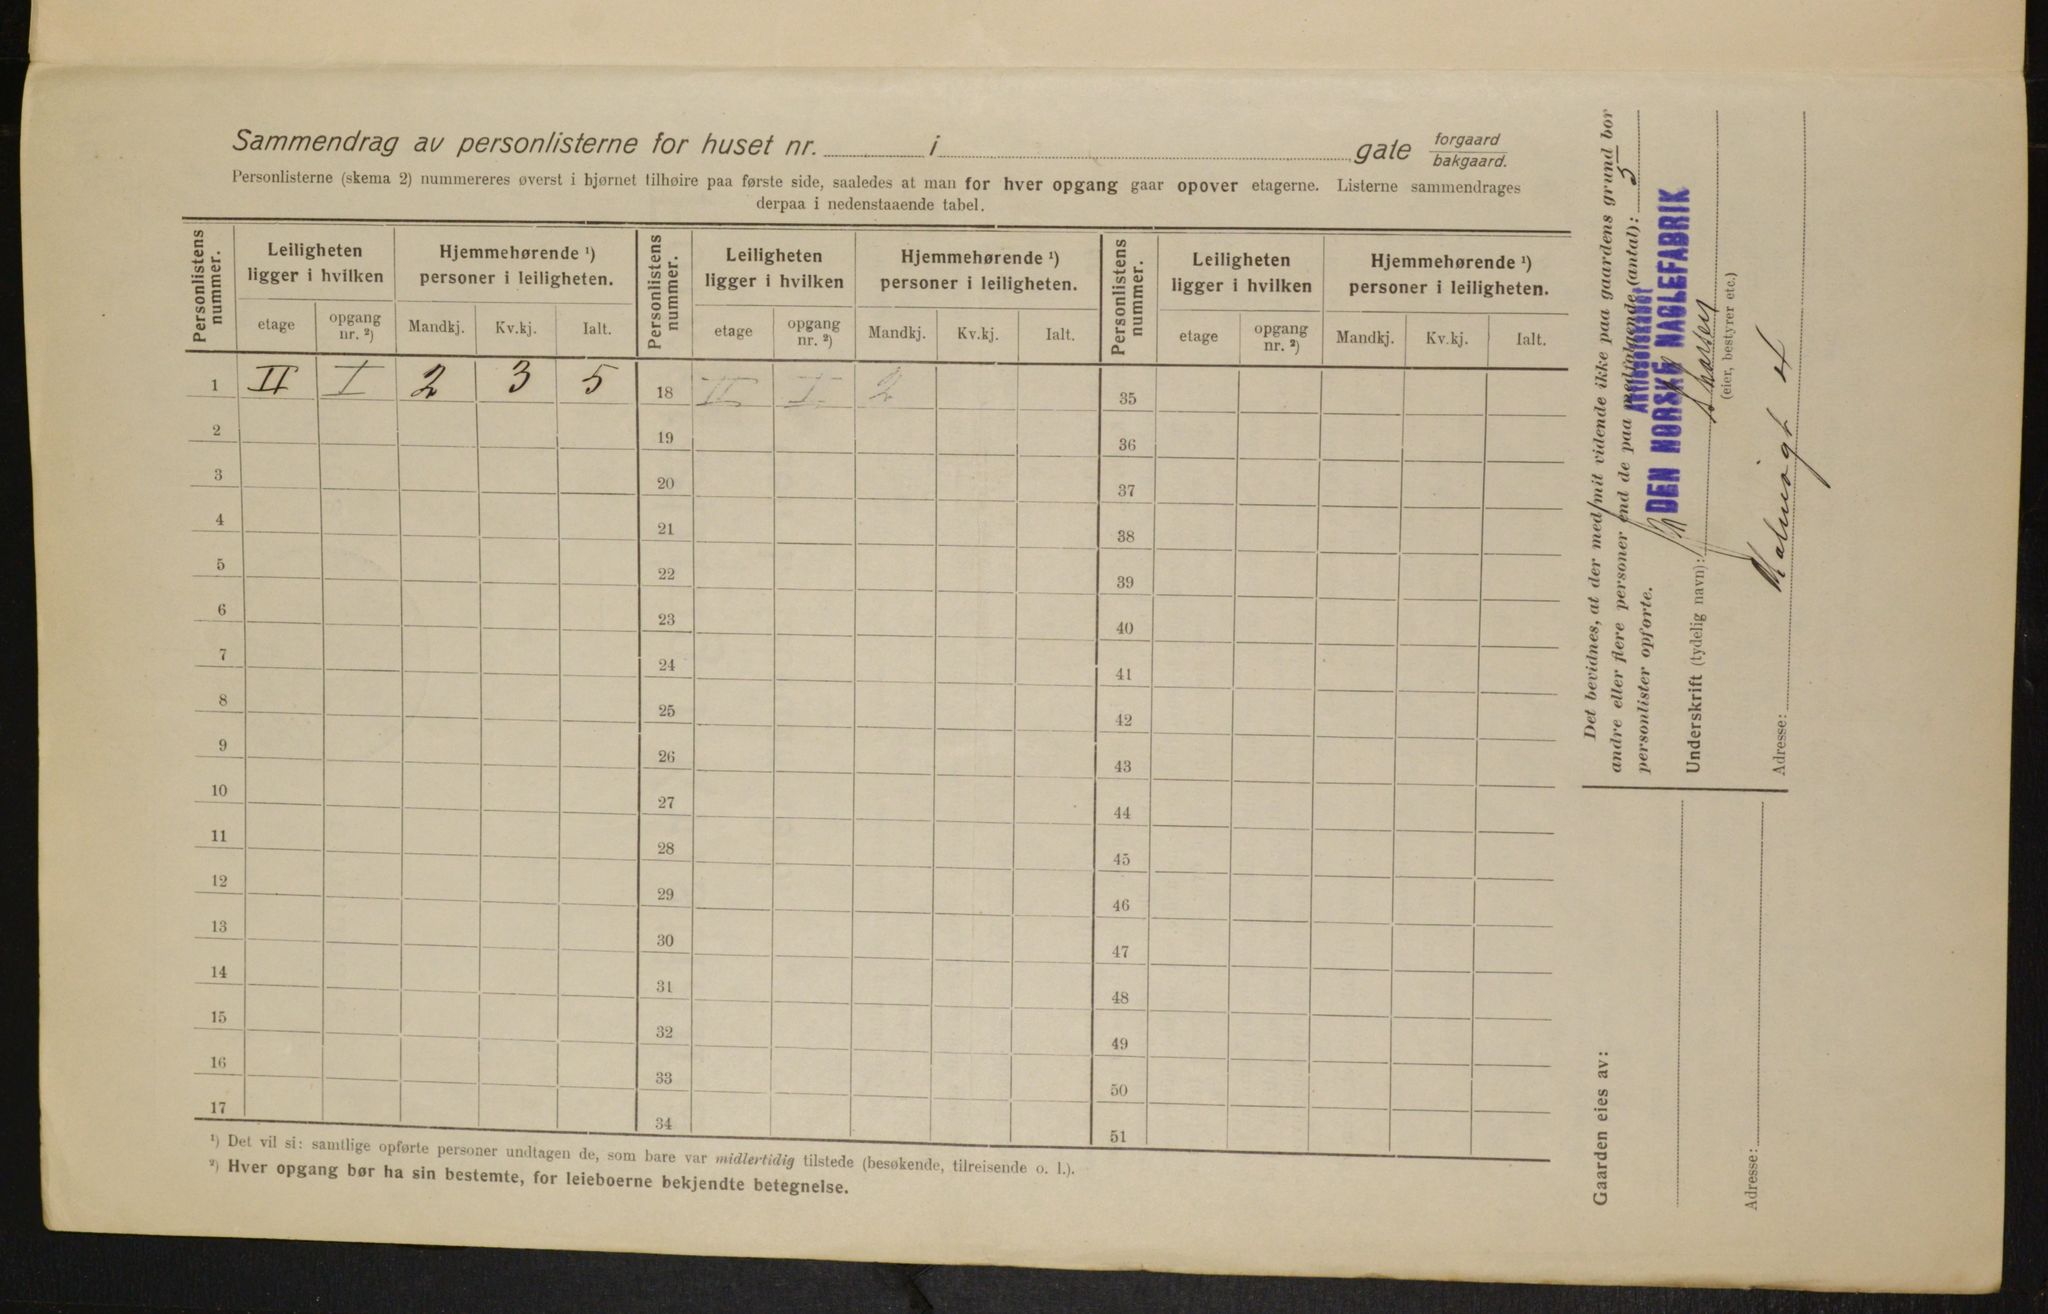 Sammendrag av personlisterne for huset nr. i gate forgaard
bakgaard.
Personlisterne (skema 2) nummereres øverst i hjørnet tilhøire paa første side, saaledes at man for hver opgang gaar opover etagerne. Listerne sammendrages
derpaa i nedenstaaende tabel.
Personlistens nummer. Leiligheten ligger i hvilken Hjemmehørende ¹) personer i leiligheten. Personlistens nummer. Leiligheten ligger i hvilken Hjemmehørende ¹) personer i leiligheten. Personlistens nummer. Leiligheten ligger i hvilken Hjemmehørende ¹) personer i leiligheten.
etage opgang nr. ²) Mandkj. Kv.kj. Ialt. etage opgang nr. ²) Mandkj. Kv.kj. Ialt. etage opgang nr. ²) Mandkj. Kv.kj. Ialt.
1 II I 2 3 5 18 II I 2 35
2 19 36
3 20 37
4 21 38
5 22 39
6 23 40
7 24 41
8 25 42
9 26 43
10 27 44
11 28 45
12 29 46
13 30 47
14 31 48
15 32 49
16 33 50
17 34 51
¹) Det vil si: samtlige opførte personer undtagen de, som bare var midlertidig tilstede (besøkende, tilreisende o. l.).
²) Hver opgang bør ha sin bestemte, for leieboerne bekjendte betegnelse.
Det bevidnes, at der med/mit vidende ikke paa gaardens grund bor
andre eller flere personer end de paa medfølgende (antal): 5
personlister opførte.
AKTIESELSKABET
DEN NORSKE NAGLEFABRIK
Underskrift (tydelig navn):
(eier, bestyrer etc.)
Adresse: 4
Gaarden eies av:
Adresse: